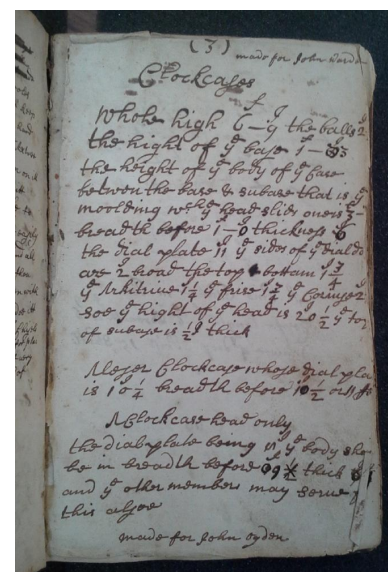 (3) made for John
Clockcases
f J
Whole high 6–9 the balls 2
the hight of ye base 1–
the height of ye body of ye Case
betwen the base & subase that is ye
moolding wch ye head slids overs 3–
breadth before 1–0 thickness 6
the dial plate 11 ye sides of ye dial do
are 2 broad the top bottom 1 3/4
ye Arkitrive 1 1/4 ye frise 1 3/4 ye Cornise 2
soe ye hight of ye head is 20 1/2 ye top
of subase is 1/2 thick
A lesser Clockcase whose dial pla
is 10 1/4 breadth before 10 1/2 or 11
A Clockcase head only
the dial plate being 11 ye body sho
be in breadth before thick
and ye other members may serve
this alsoe
made for John ogden